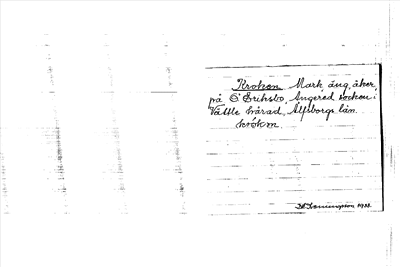 Kroken Mark, äng, åker,
på Ö Eriksbo, Angered socken i
Vättle härad, Älfsborgs län.
krókƏn.
1933.